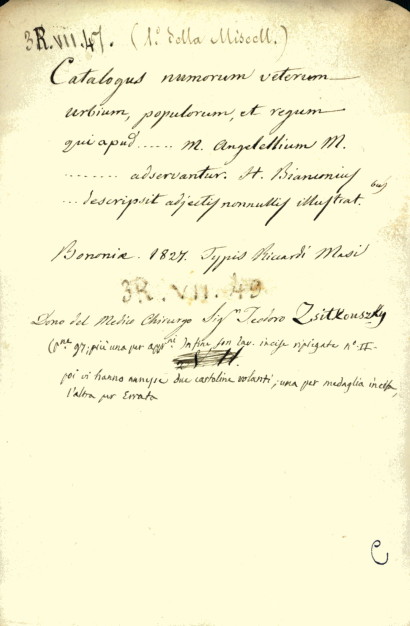 3R.VII.47. (1.º della Miscell.)
Catalogus numorum veterum
urbium, populorum, et regum
qui apud ...... M. Angellium M.
......... adservantur. H. Bianconius
... descripsit adjectis nonnullis illustrat. bus
Bononiæ. 1827. Typis Riccardi Masi
3R.VII.49
Dono del Medico Chirurgo Sigr Teodoro Zsitkouszky
(pne 97; più una per appni) Infine son Tav. incise ripiegate nº II.
poi vi hanno annesse due cartoline volanti; una per medaglia incisa,
l'altra per Errata
C